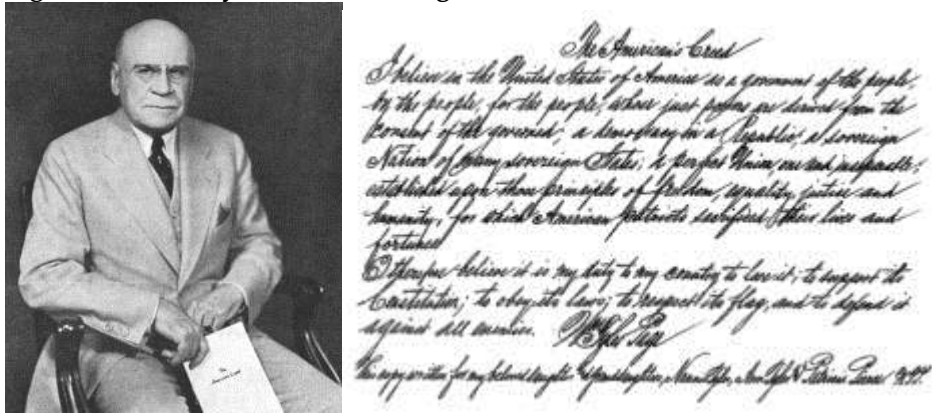 The American's Creed
The American's Creed
I believe in the United States of America as a government of the people,
by the people, for the people; whose just powers are derived from the
consent of the governed; a democracy in a Republic; a sovereign
Nation of many sovereign States; a perfect Union, one and inseparable;
established upon those principles of freedom, equality, justice and
humanity, for which American patriots sacrificed their lives and
fortunes
I therefore believe it is my duty to my country to love it; to support its
Constitution; to obey its laws; to respect its flag, and to defend it
against all enemies. Wm Tyler Page
This copy written for my beloved daughter